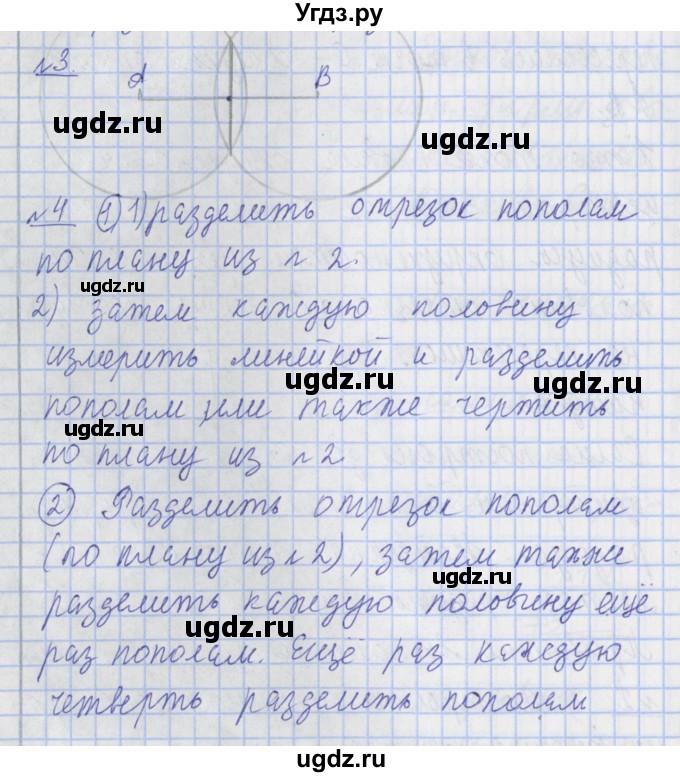 Угдз.ру
№3.
A B
ugdz.ru ugdz.ru
№4 ① 1) разделить отрезок пополам
по плану из №2.
ugdz.ru
2) затем каждую половину
измерить линейкой и разделить
ugdz.ru ugdz.ru
пополам или также чертить
ugdz.ru
по плану из №2
② Разделить отрезок пополам
ugdz.ru
(по плану из №2), затем также
ugdz.ru
разделить каждую половину ещё
ugdz.ru
раз пополам. Ещё раз каждую
ugdz.ru
четверть разделить пополам
ugdz.ru